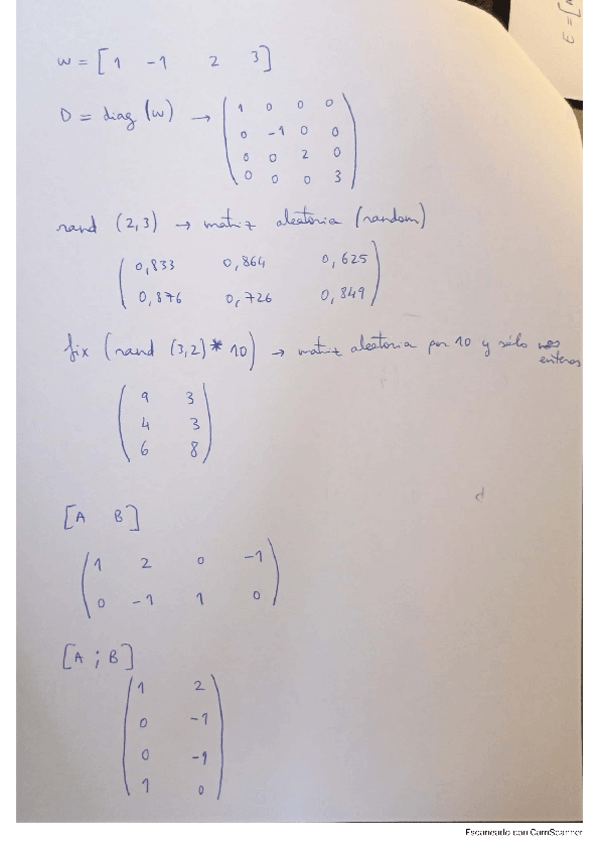 E = [
w = [1 -1 2 3]
D = diag (w) → (1 0 0 0
0 -1 0 0
0 0 2 0
0 0 0 3)
rand (2,3) → matriz aleatoria (random)
(0,833 0,864 0,625
0,876 0,726 0,849)
fix (rand (3,2)*10) → matriz aleatoria por 10 y sólo nos
enteros
(9 3
4 3
6 8)
[A B]
(1 2 0 -1
0 -1 1 0)
[A ; B]
(1 2
0 -1
0 -1
1 0)
Escaneado con CamScanner